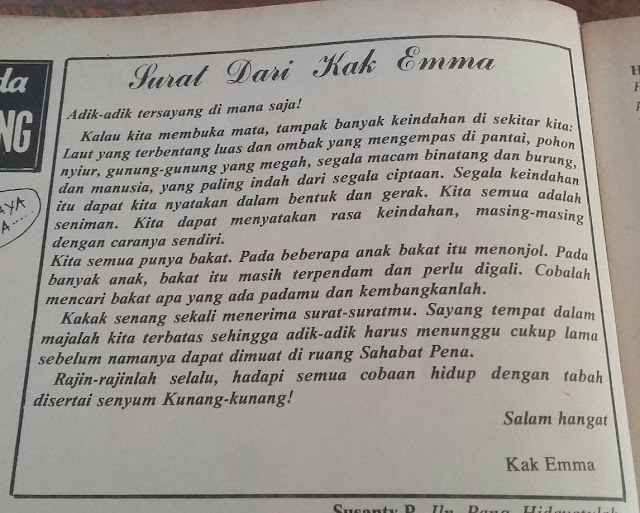 Surat Dari Kak Emma
Adik-adik tersayang di mana saja!
Kalau kita membuka mata, tampak banyak keindahan di sekitar kita:
Laut yang terbentang luas dan ombak yang mengempas di pantai, pohon
nyiur, gunung-gunung yang megah, segala macam binatang dan burung,
dan manusia, yang paling indah dari segala ciptaan. Segala keindahan
itu dapat kita nyatakan dalam bentuk dan gerak. Kita semua adalah
seniman. Kita dapat menyatakan rasa keindahan, masing-masing
dengan caranya sendiri.
Kita semua punya bakat. Pada beberapa anak bakat itu menonjol. Pada
banyak anak, bakat itu masih terpendam dan perlu digali. Cobalah
mencari bakat apa yang ada padamu dan kembangkanlah.
Kakak senang sekali menerima surat-suratmu. Sayang tempat dalam
majalah kita terbatas sehingga adik-adik harus menunggu cukup lama
sebelum namanya dapat dimuat di ruang Sahabat Pena.
Rajin-rajinlah selalu, hadapi semua cobaan hidup dengan tabah
disertai senyum Kunang-kunang!
Salam hangat
Kak Emma
da
NG
AYA
A
Susanty P.